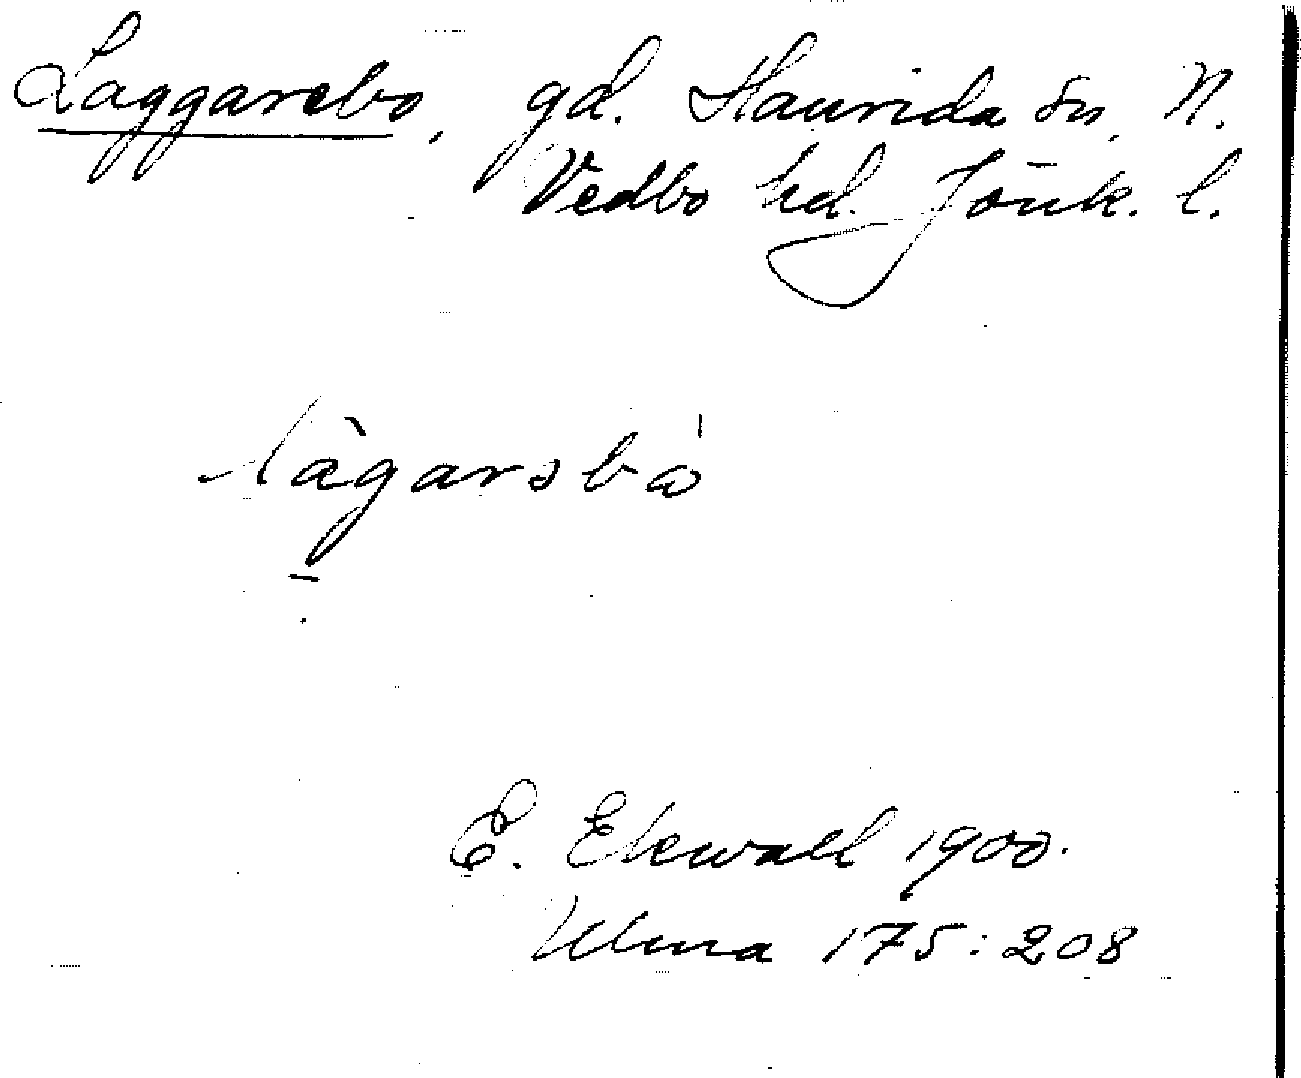 Laggarebo, gd. Haurida sn, N.
Vedbo hd. Jönk. l.
làgarsbó
E. Ekwall 1900.
Ulma 175:208